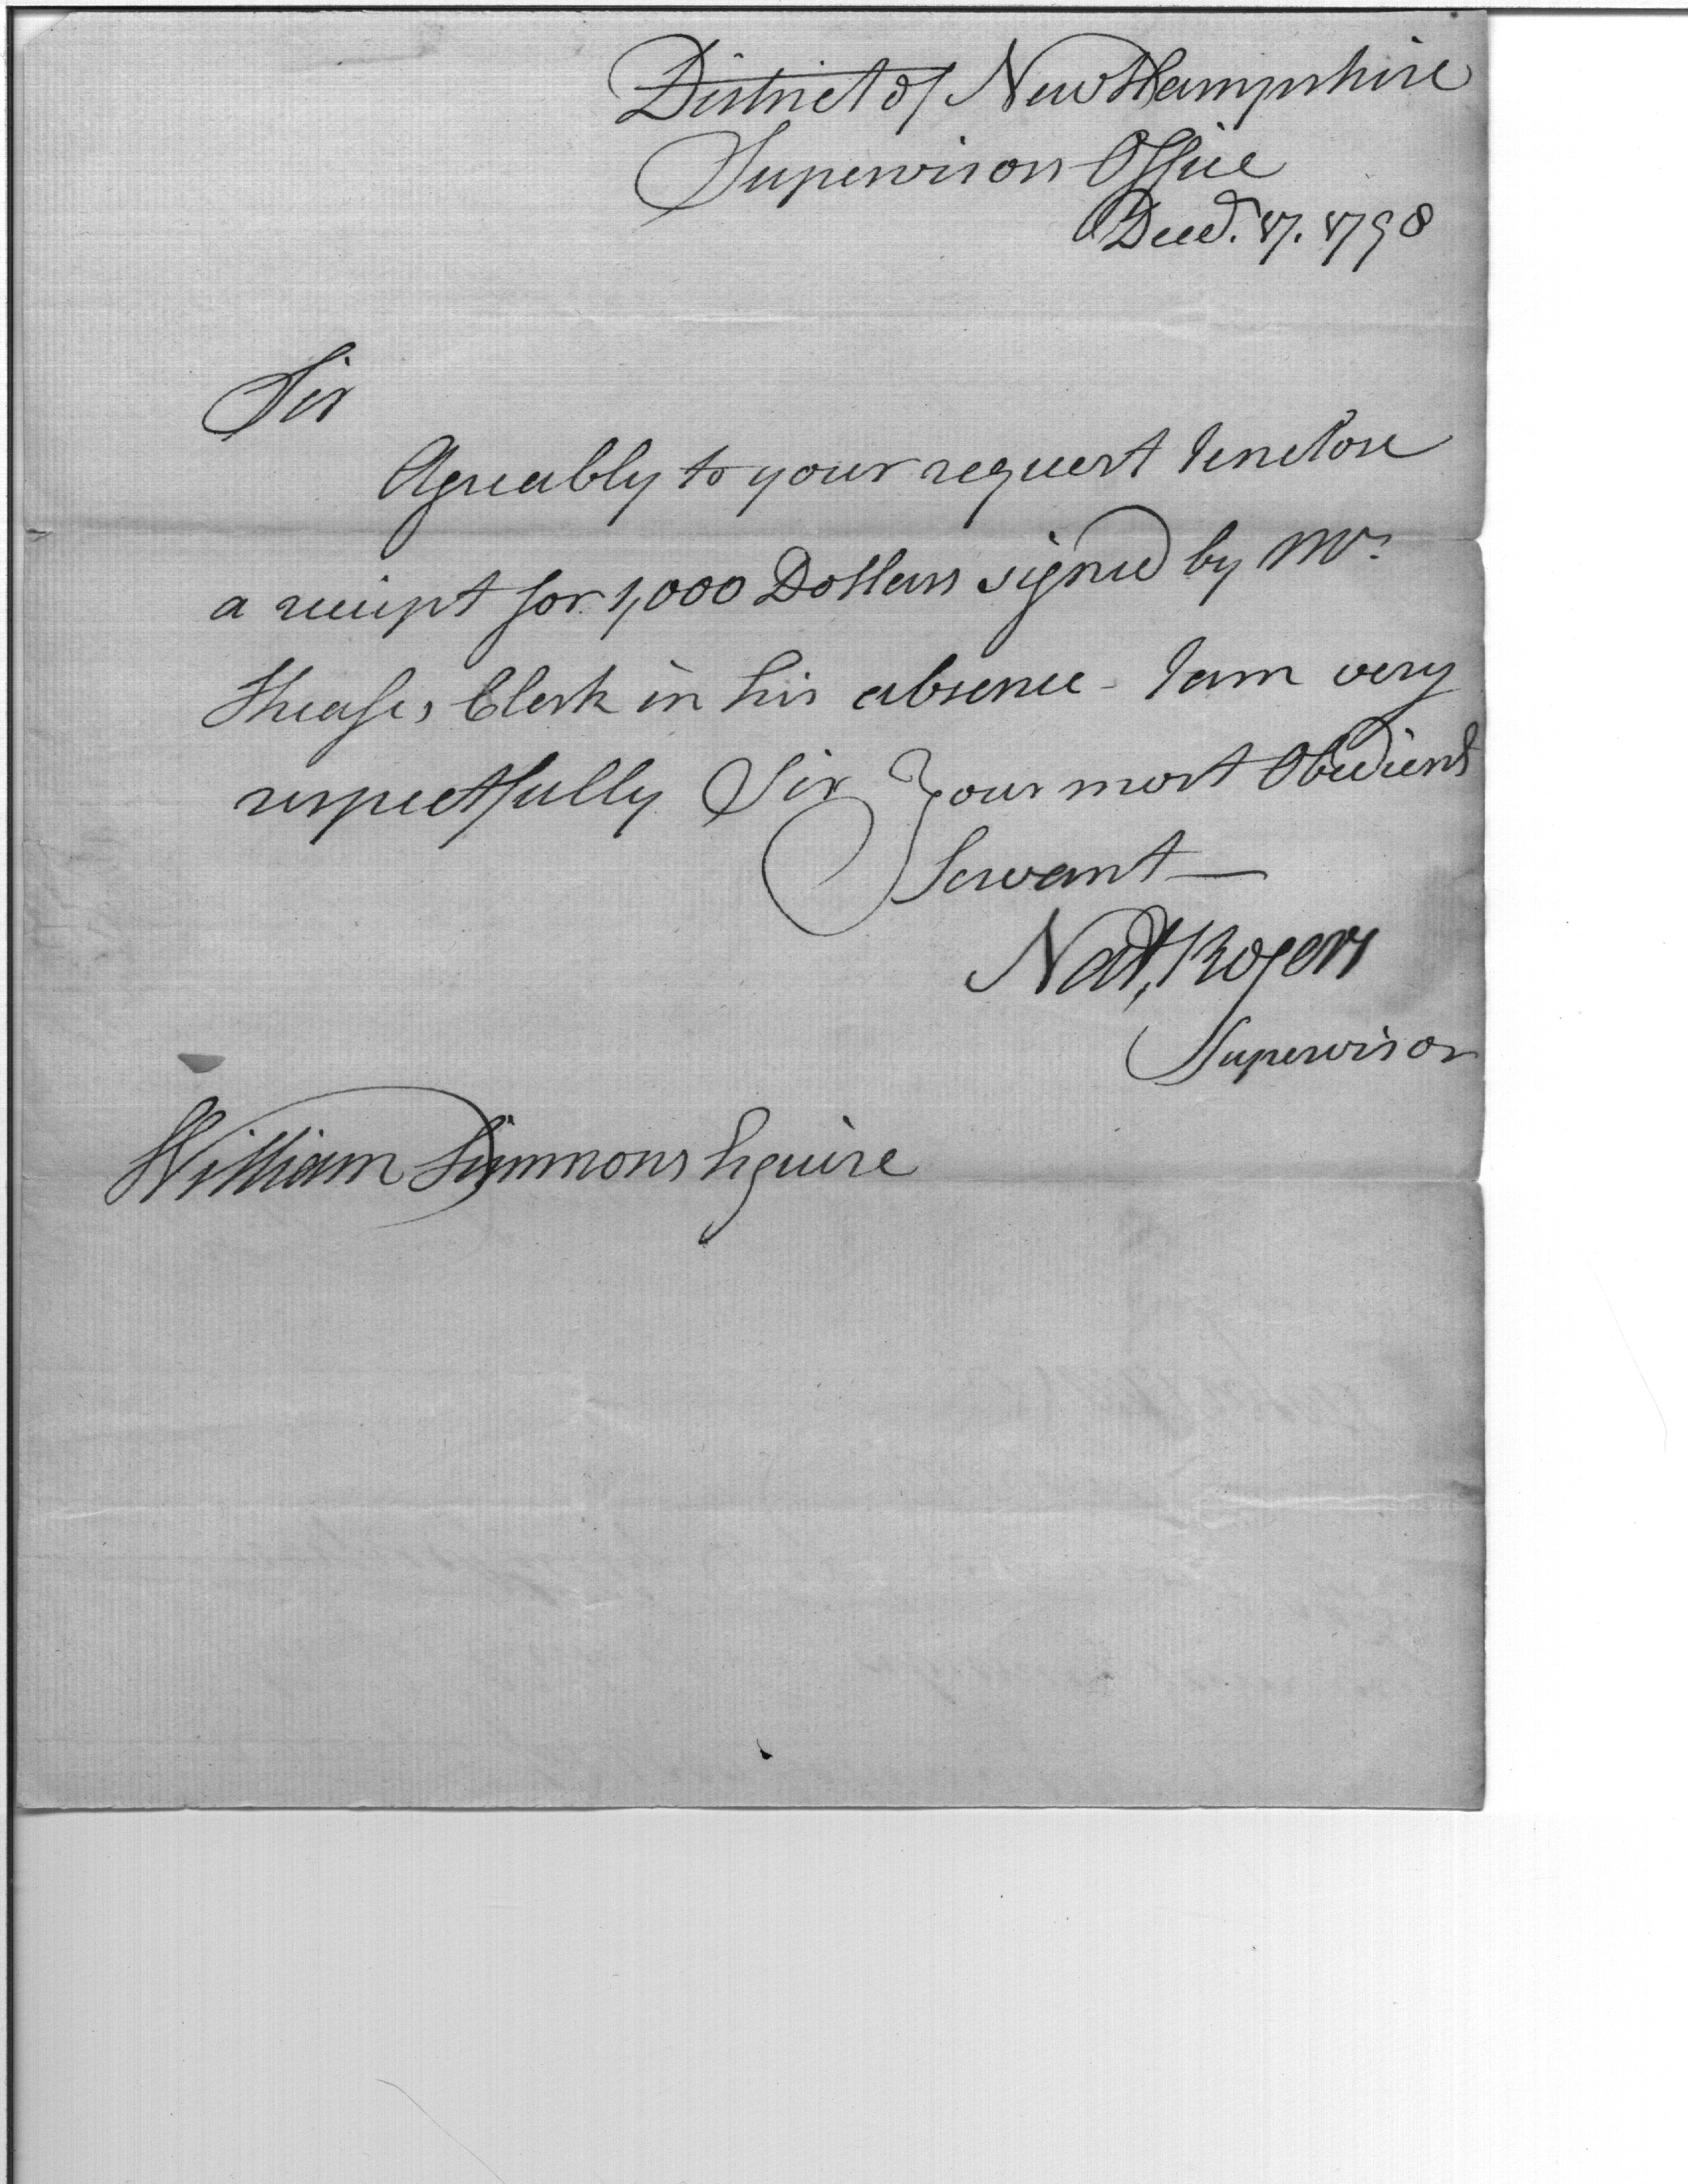 District of New Hampshire
Supervisors Office
17. 1798
Sir
Agreably to your request I enclose
a receipt for 1,000 Dollars signed by Mr.
Clerk in his absence - I am very
respectfully Sir Your most Obedient
Servant —
Natl, Rogers
Supervisor
William Simmons Esquire